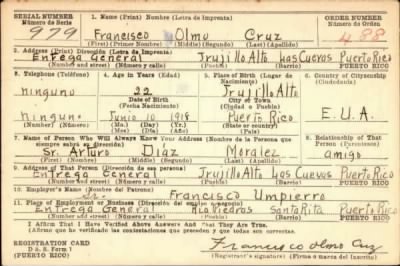 SERIAL NUMBER 1. Name (Print) Nombre (Letra de Imprenta) ORDER NUMBER
Número de Serie Número de Orden
979 Francisco Olmo Cruz 488
(First) (Primer Nombre) (Middle) (Segundo) (Last) (Apellido)
2. Address (Print) Dirección (Letra de Imprenta)
Entrega General Trujillo Alto Las Cuevas Puerto Rico
(Number and street) (Número y calle) (Town) (Pueblo) PUERTO RICO
3. Telephone (Teléfono) 4. Age in Years (Edad) 5. Place of Birth (Lugar de Nacimiento) 6. Country of Citizenship (Ciudadanía)
ninguno 22 Trujillo Alto
Date of Birth (Fecha Nacimiento) City of Town (Ciudad o Pueblo)
ninguno Junio 10 1918 Puerto Rico E.U.A.
(Mo.) (Day) (Yr.) (State or country)
7. Name of Person Who Will Always Know Your Address (Nombre de la Persona que siempre sabrá su dirección) 8. Relationship of That Person (Parentesco)
Sr. Arturo Diaz Morales amigo
(First) (Middle) (Segundo) (Last) (Apellido)
9. Address of That Person (Dirección de esa persona)
Entrega General Trujillo Alto Las Cuevas Puerto Rico
(Number and street) (Número y calle) (Town) (Pueblo) PUERTO RICO
10. Employer's Name (Nombre del Patrono)
Sr. Francisco Umpierro
11. Place of Employment or Business (Dirección del empleo o negocio)
Entrega General Rio Piedras Santa Rita Puerto Rico
(Number and street) (Número y calle) (Town) (Pueblo) PUERTO RICO
I Affirm That I Have Verified Above Answers and That They Are True.
(Afirmo que he verificado las contestaciones que preceden y que todas son ciertas.)
REGISTRATION CARD
D. s. s. Form 1
(PUERTO RICO)
Francisco Olmo Cruz
(Registrant's signature) (Firma o marca del inscrito)